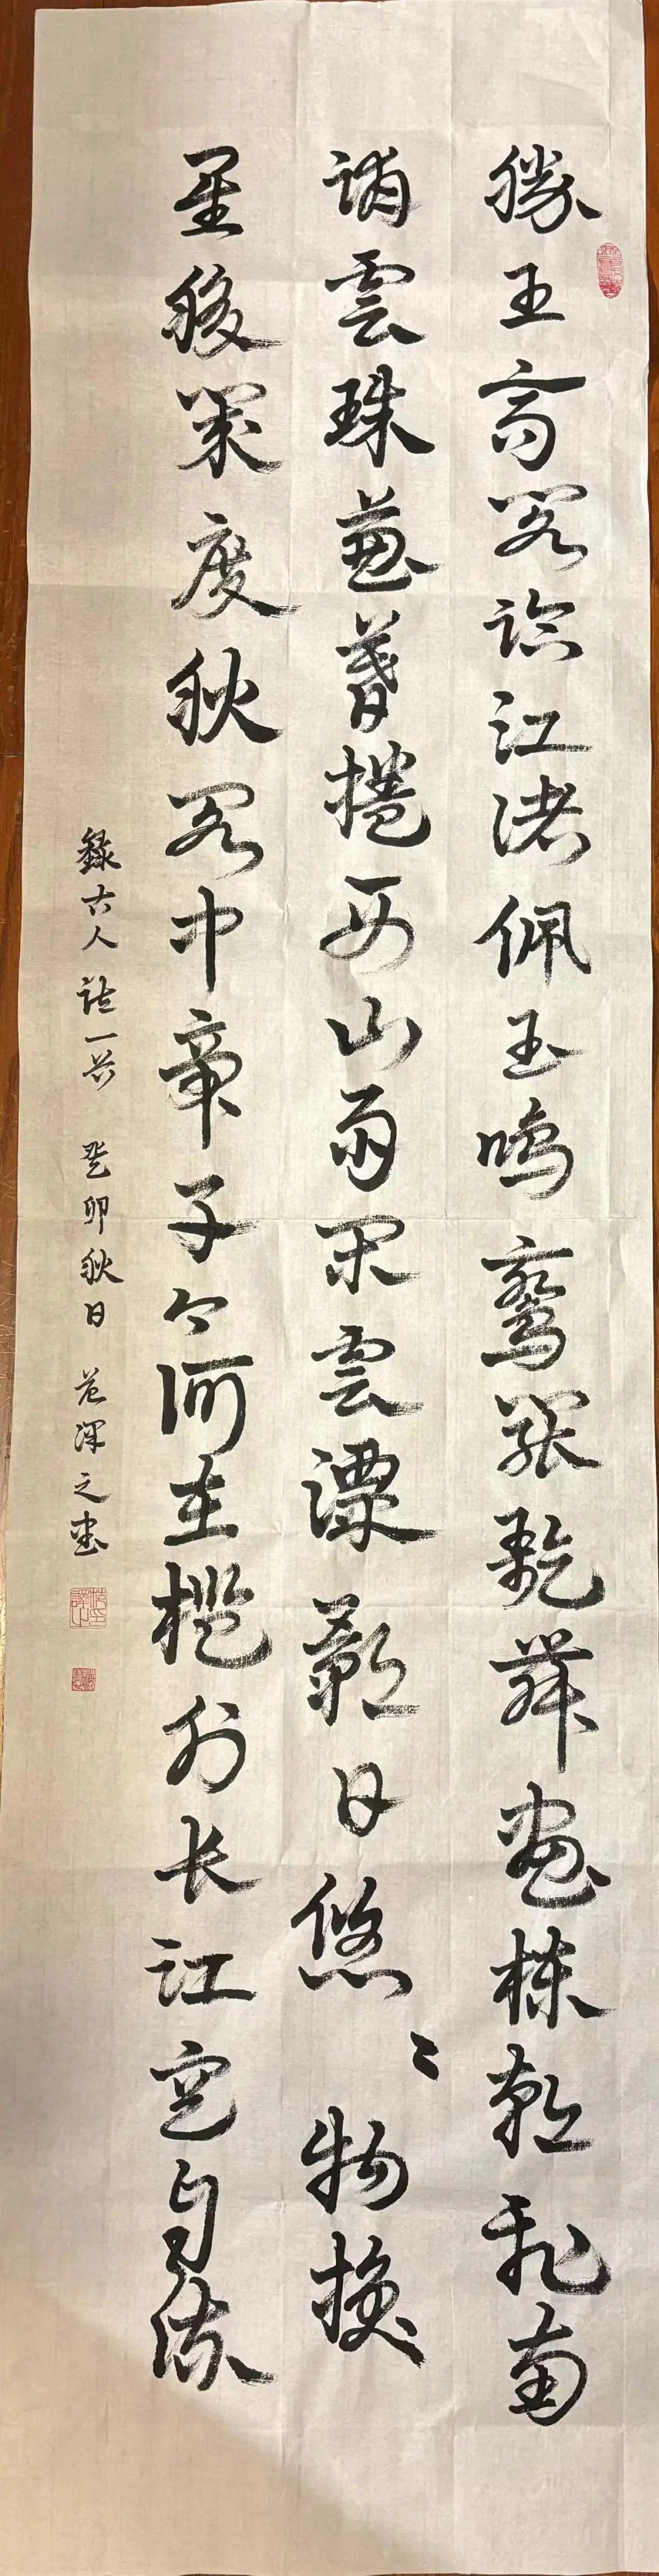 滕王高阁临江渚佩玉鸣鸾罢歌舞画栋朝飞南
浦雲珠薝暮捲西山雨闲雲潭影日悠〻物换
星移几度秋阁中帝子今何在槛外长江空自流
錄古人诗一首 癸卯秋日 范泽之書